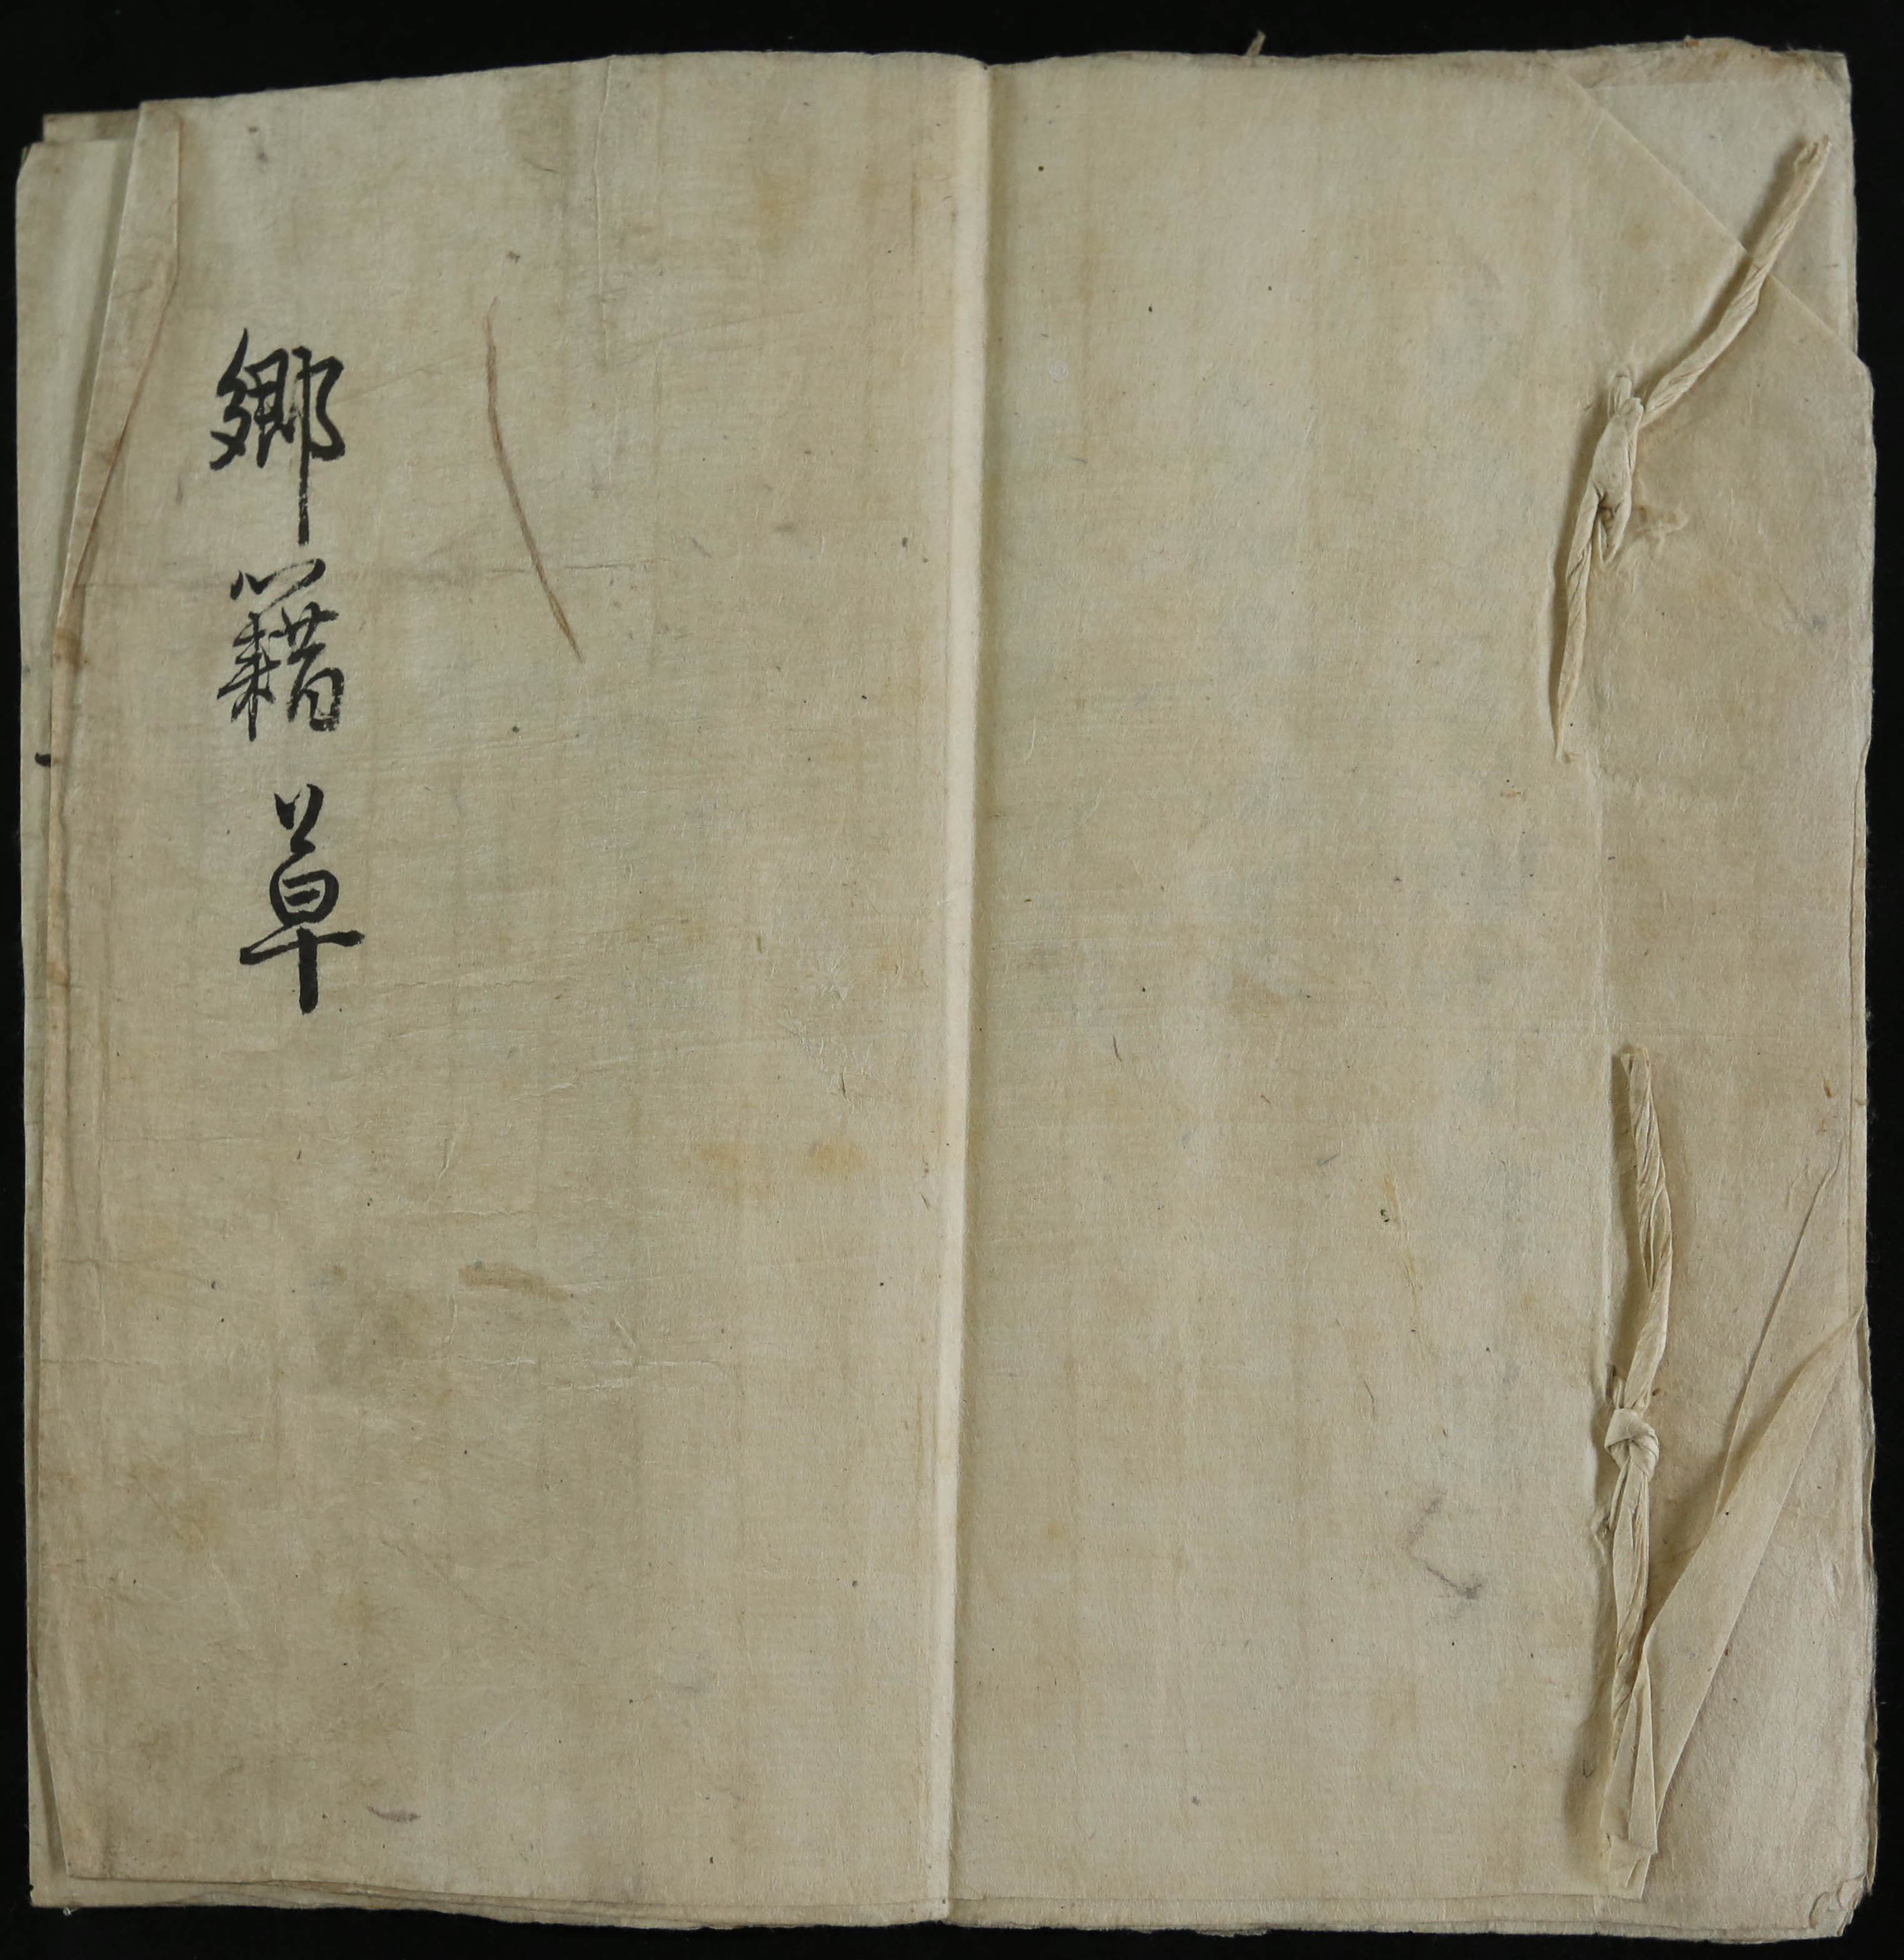 鄉籍草